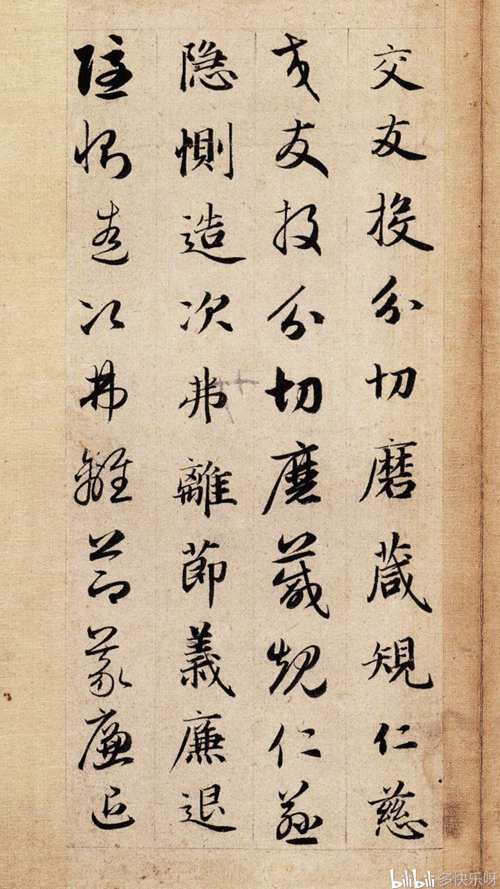 交友投分切磨葴規仁慈
交友投分切磨葴規仁慈
隐惻造次弗離節義廉退
隐惻造次弗離節義廉退
bilibili 多快乐呀